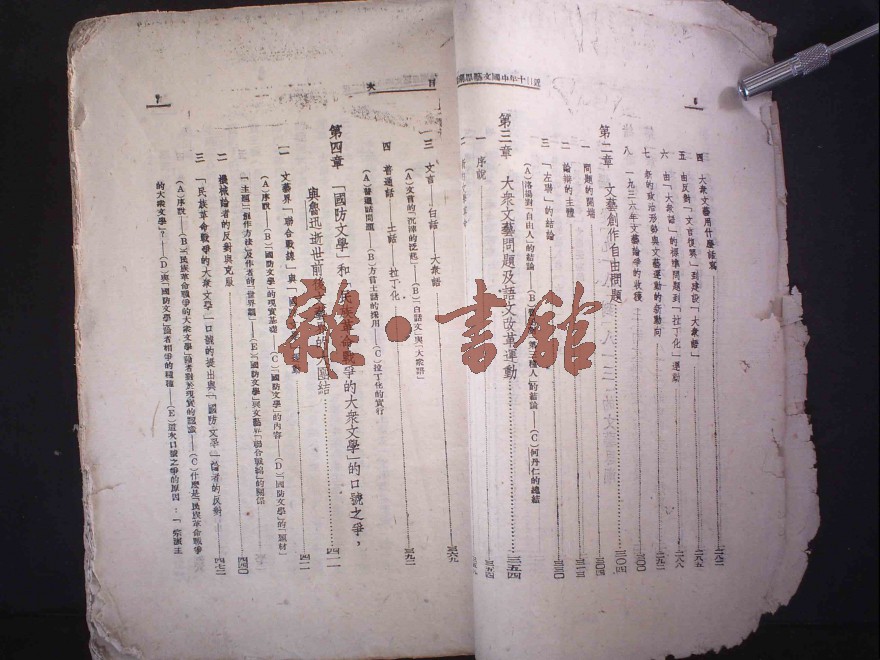 近二十年中國文藝思潮論
四 大衆文藝用什麼話寫 二八二
五 由反對「文言復興」到建設「大衆語」 二八五
六 由「大衆語」的標準問題到「拉丁化」運動 二八八
七 新的政治形勢與文藝運動的新動向 二九二
八 一九三六年文藝論爭的收穫 三〇〇
第二章 文藝創作自由問題 三〇四
一 問題的開端 三〇四
二 論辯的主體 三一三
三 「左聯」的結論 三三〇
(A)洛揚對「自由人」的結論——(B) 「第三種人」的結論——(C)何丹仁的總結
第三章 大衆文藝問題及語文改革運動 三五四
一 序說 三五四
目次
三 文言——白話——大衆語 三六九
(A)文言的「沉滓的泛起」——(B)「白話文」與「大衆語」
四 普通話——土話——拉丁化 三九二
(A)普通話問題——(B)方言土話的採用——(C)拉丁化的實行
第四章 「國防文學」和「民族革命戰爭的大衆文學」的口號之爭，
與魯迅逝世前後文藝界的大團結 四一一
一 文藝界「聯合戰線」與「國防文學」運動 四一一
(A)序說——(B)「國防文學」的現實基礎——(C)「國防文學」的內容——(D)「國防文學」的「題材」
「主題」創作方法及作者的「世界觀」——(E)「國防文學」與文藝界「聯合戰線」的關係
二 機械論者的反對與克服 四四〇
三 「民族革命戰爭的大衆文學」口號的提出與「國防文學」論者的反對 四七二
(A)序說——(B)「民族革命戰爭的大衆文學」論者對於現實的認識——(C)什麼是「民族革命戰爭
的大衆文學」？——(D)與「國防文學」論者相爭的種種——(E)這次口號之爭的原因：「宗派主
雜·書館